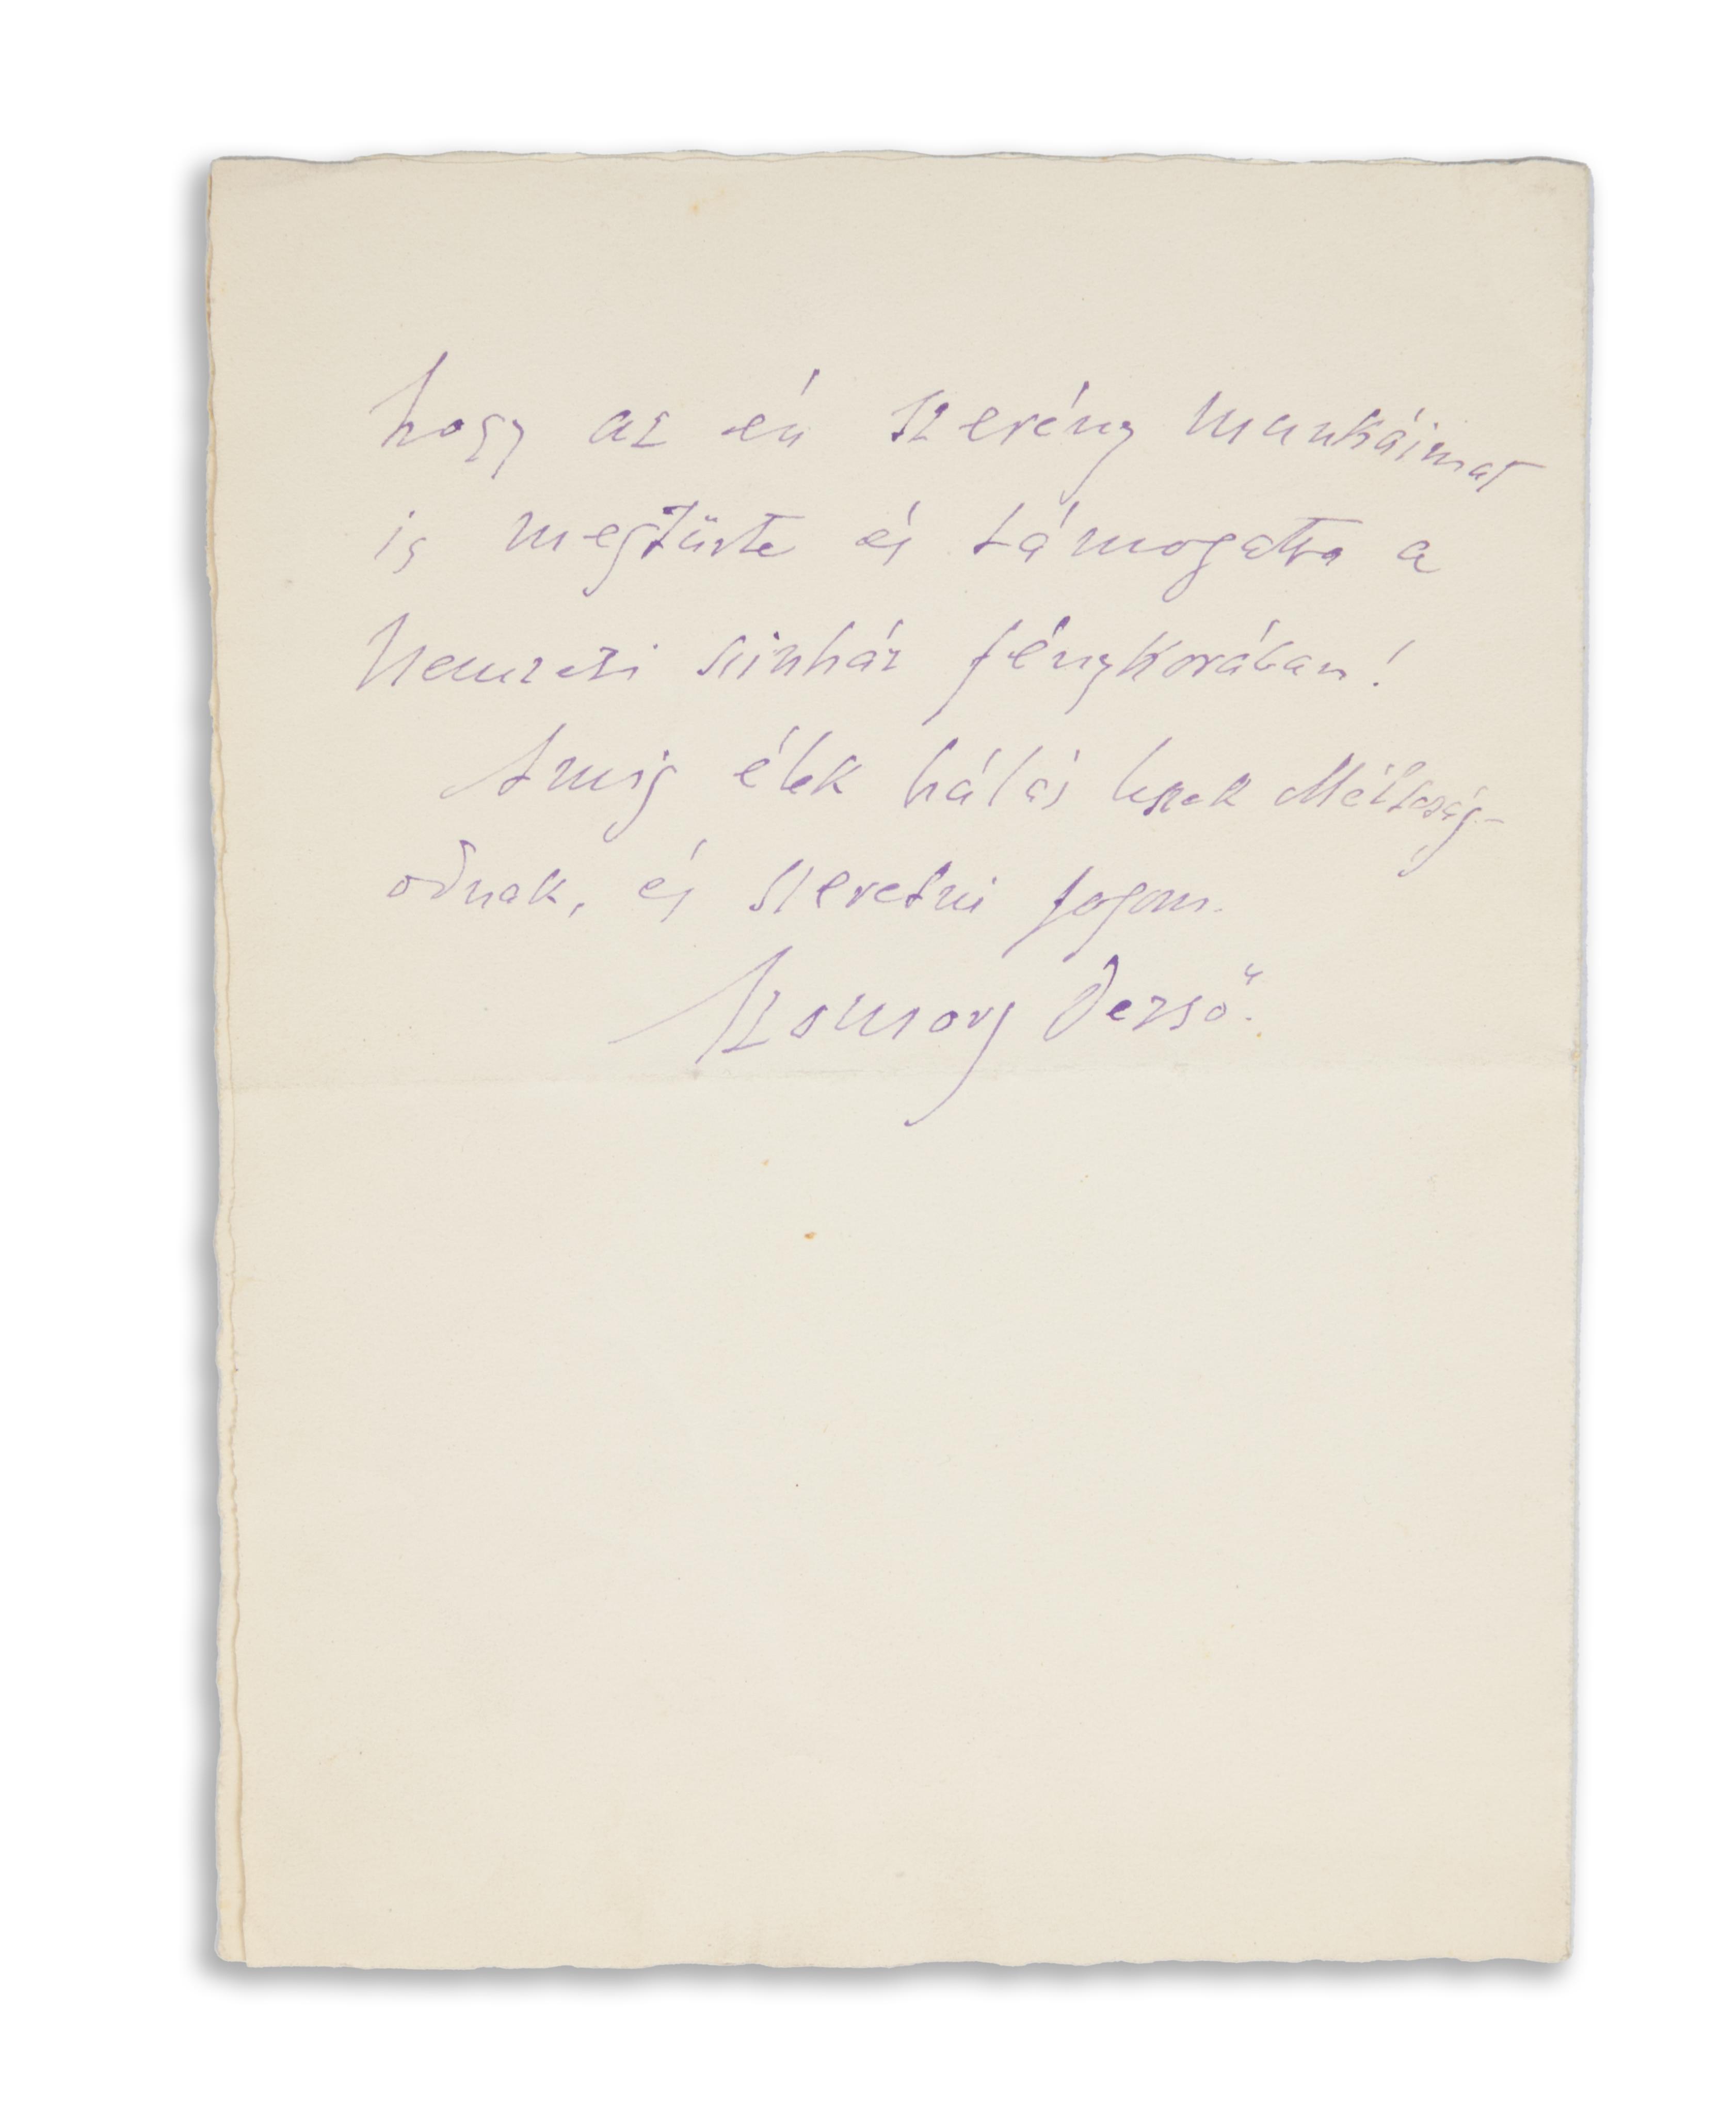 hogy az én szerény munkáimat
is megtürte és támogatta a
Nemzeti szinház fénykorában!
Amig élek hálás leszek Méltoság-
odnak, és szeretni fogom.
Szomory Dezső.